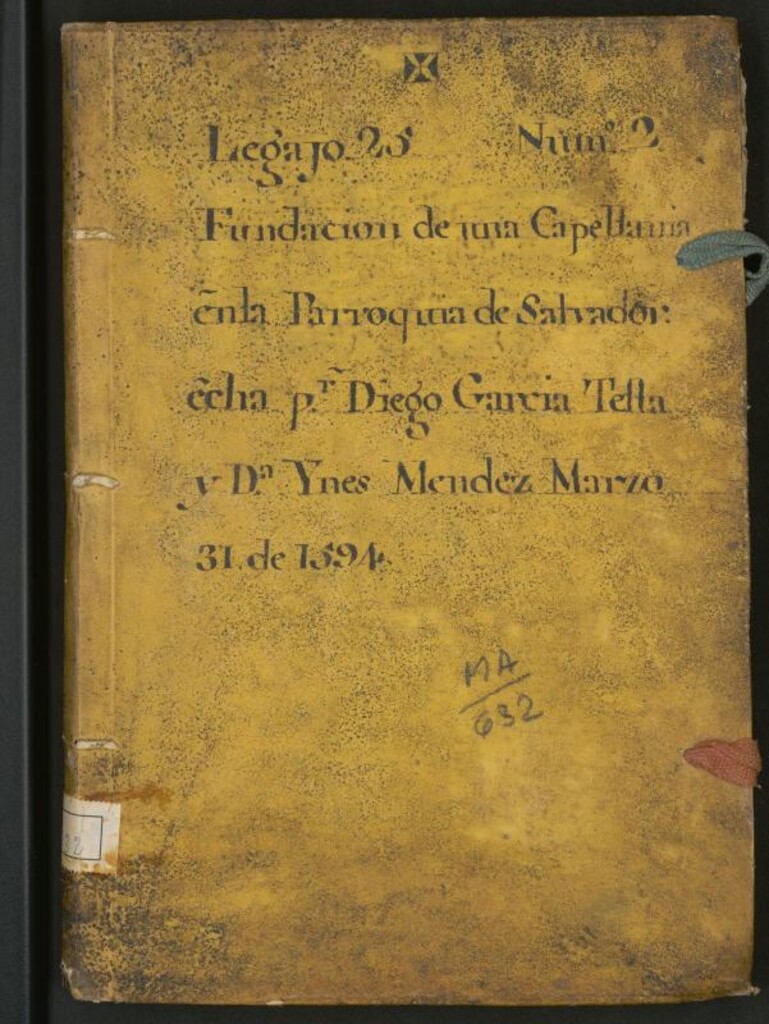 Legajo 25 Num.º 2
Fundacion de una Capellania
ēnla Parroquia de Salvador:
ēcha p.r Diego Garcia Tella
y D.ª Ynes Mendez Marzo
31. de 1594.
MA
632
32